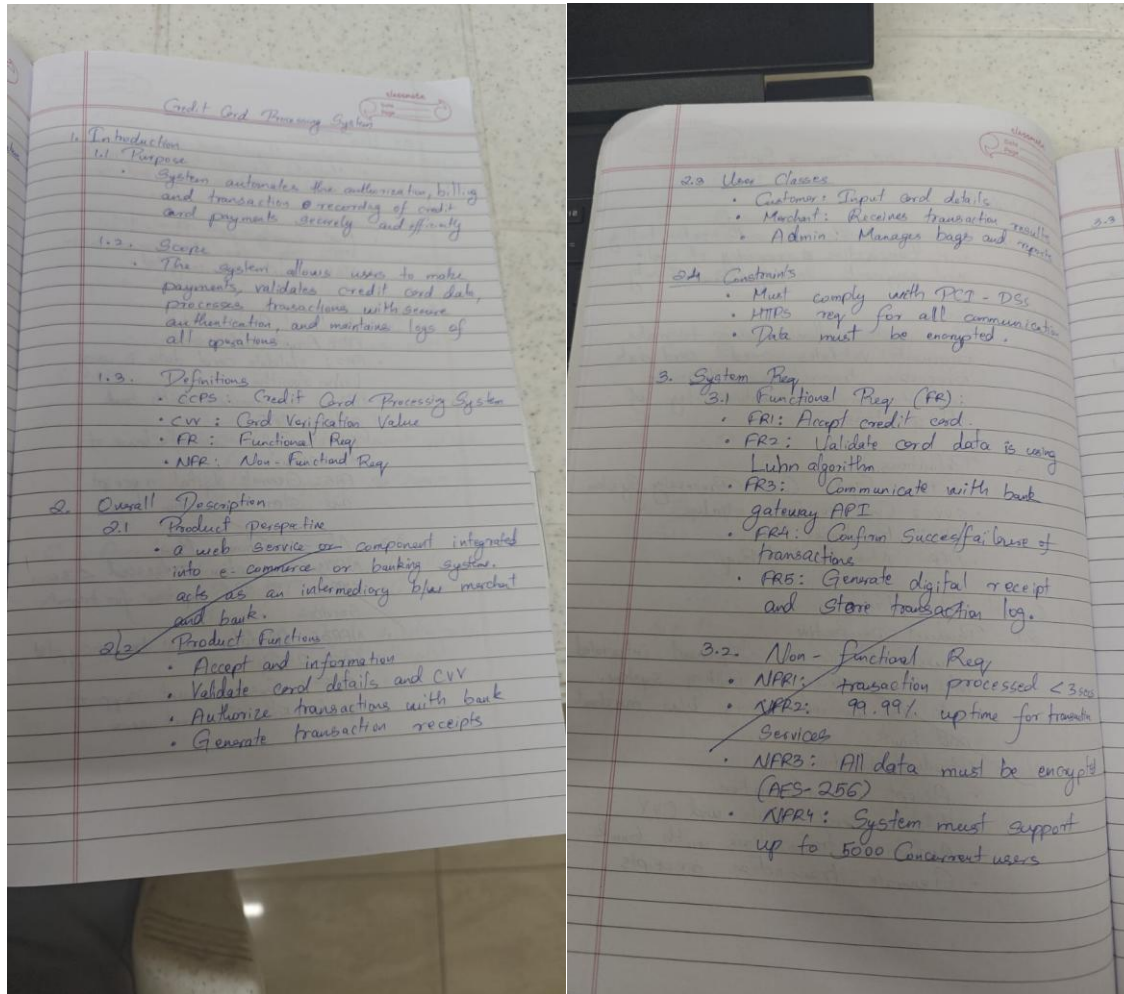 classmate
Date
Page
Credit Card Processing System
1. Introduction
1.1 Purpose
• System automates the authorization, billing
and transaction recording of credit
card payments securely and efficiently
1.2. Scope
• The system allows users to make
payments, validates credit card data,
processes transactions with secure
authentication, and maintains logs of
all operations.
1.3. Definitions
• CCPS : Credit Card Processing System
• CVV : Card Verification Value
• FR : Functional Req
• NFR : Non-Functional Req
2. Overall Description
2.1 Product perspective
• a web service or component integrated
into e-commerce or banking system.
acts as an intermediary b/w merchant
and bank.
2.2 Product Functions
• Accept and information
• Validate card details and CVV
• Authorize transactions with bank
• Generate transaction receipts
classmate
Date
Page
2.3 User Classes
• Customer: Input card details
• Merchant: Receives transaction results
• Admin: Manages bags and reports
2.4 Constraints
• Must comply with PCI-DSS
• HTTPS req for all communication
• Data must be encrypted.
3. System Req
3.1 Functional Req (FR):
• FR1: Accept credit card.
• FR2: Validate card data is using
Luhn algorithm
• FR3: Communicate with bank
gateway API
• FR4: Confirm Success/failure of
transactions
• FR5: Generate digital receipt
and store transaction log.
3.2. Non-functional Req
• NFR1: transaction processed <3secs
• NFR2: 99.99% uptime for transaction
Services
• NFR3: All data must be encrypted
(AES-256)
• NFR4: System must support
up to 5000 Concurrent users
3.3